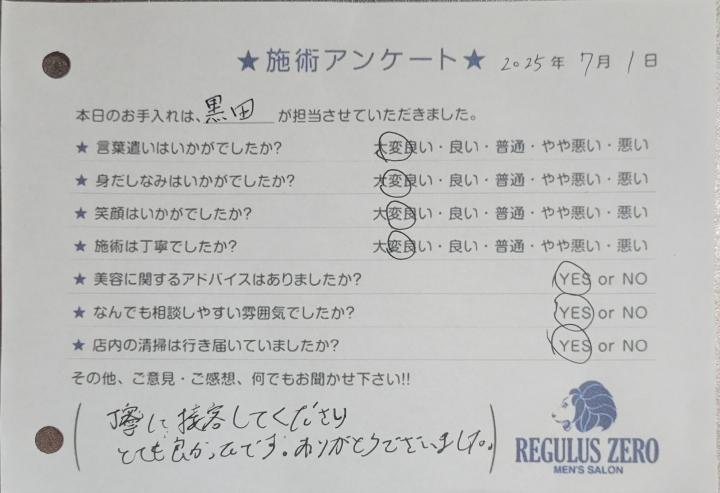 ★施術アンケート★ 2025年 7月 1日
本日のお手入れは、黒田が担当させていただきました。
★ 言葉遣いはいかがでしたか? 大変良い・良い・普通・やや悪い・悪い
★ 身だしなみはいかがでしたか? 大変良い・良い・普通・やや悪い・悪い
★ 笑顔はいかがでしたか? 大変良い・良い・普通・やや悪い・悪い
★ 施術は丁寧でしたか? 大変良い・良い・普通・やや悪い・悪い
★ 美容に関するアドバイスはありましたか? YES or NO
★ なんでも相談しやすい雰囲気でしたか? YES or NO
★ 店内の清掃は行き届いていましたか? YES or NO
その他、ご意見・ご感想、何でもお聞かせ下さい!!
丁寧に接客してくださり
とても良かったです。ありがとうございました。
REGULUS ZERO
MEN'S SALON